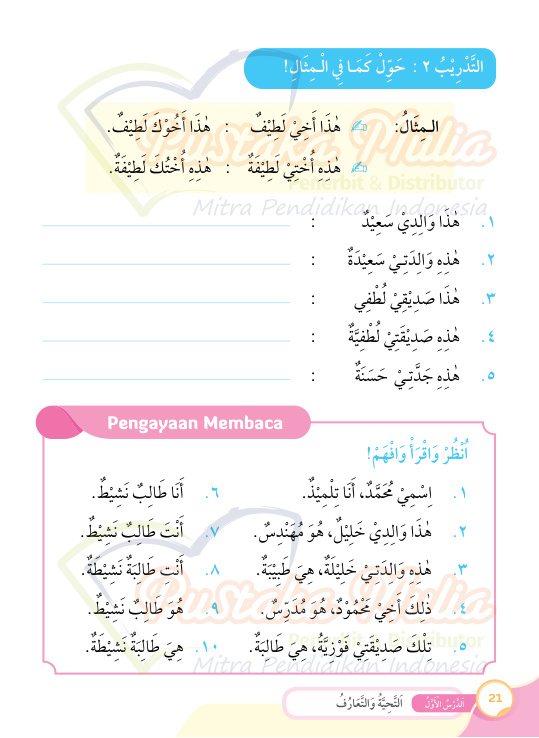 التَّدْرِيْبُ ٢ : حَوِّلْ كَمَا فِي الْـمِثَالِ!
الـمِثَالُ: ✍ هٰذَا أَخِيْ لَطِيْفٌ : هٰذَا أَخُوْكَ لَطِيْفٌ.
✍ هٰذِهِ أُخْتِيْ لَطِيْفَةٌ : هٰذِهِ أُخْتُكَ لَطِيْفَةٌ.
Pustaka Mulia
Penerbit & Distributor
Mitra Pendidikan Indonesia
١. هٰذَا وَالِدِيْ سَعِيْدٌ :
٢. هٰذِهِ وَالِدَتِـيْ سَعِيْدَةٌ :
٣. هٰذَا صَدِيْقِيْ لُطْفِي :
٤. هٰذِهِ صَدِيْقَتِيْ لُطْفِيَّةٌ :
٥. هٰذِهِ جَدَّتِـيْ حَسَنَةٌ :
Pengayaan Membaca
اُنْظُرْ وَاقْرَأْ وَافْهَمْ!
١. اِسْمِيْ مُحَمَّدٌ، أَنَا تِلْمِيْذٌ.
٢. هٰذَا وَالِدِيْ خَلِيْلٌ، هُوَ مُهَنْدِسٌ.
٣. هٰذِهِ وَالِدَتِـيْ خَلِيْلَةٌ، هِيَ طَبِيْبَةٌ.
٤. ذٰلِكَ أَخِيْ مَحْمُوْدٌ، هُوَ مُدَرِّسٌ.
٥. تِلْكَ صَدِيْقَتِيْ فَوْزِيَّةُ، هِيَ طَالِبَةٌ.
٦. أَنَا طَالِبٌ نَشِيْطٌ.
٧. أَنْتَ طَالِبٌ نَشِيْطٌ.
٨. أَنْتِ طَالِبَةٌ نَشِيْطَةٌ.
٩. هُوَ طَالِبٌ نَشِيْطٌ.
١٠. هِيَ طَالِبَةٌ نَشِيْطَةٌ.
Pustaka Mulia
Penerbit & Distributor
Mitra Pendidikan Indonesia
21 اَلدَّرْسُ الْأَوَّلُ اَلتَّحِيَّةُ وَالتَّعَارُفُ